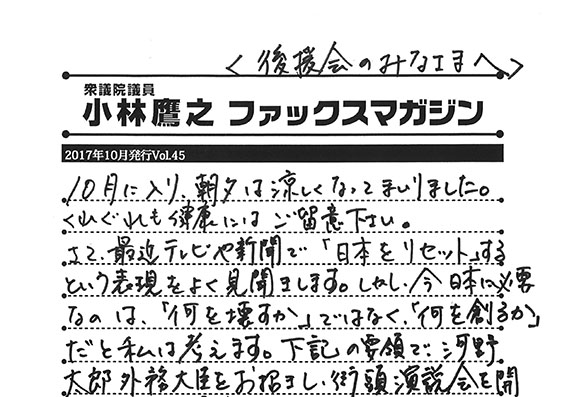 ＜後援会のみなさまへ＞
衆議院議員
小林鷹之 ファックスマガジン
2017年10月発行Vol.45
10月に入り、朝夕は涼しくなってまいりました。
くれぐれも健康にはご留意下さい。
さて、最近テレビや新聞で「日本をリセット」する
という表現をよく見聞きします。しかし、今日本に必要
なのは、「何を壊すか」ではなく、「何を創るか」
だと私は考えます。下記の要領で、河野
太郎外務大臣をお招きし、街頭演説会を開